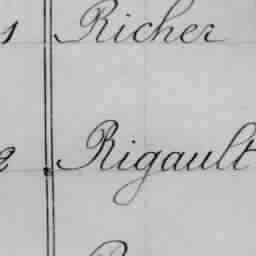 1 Richer
2 Rigault